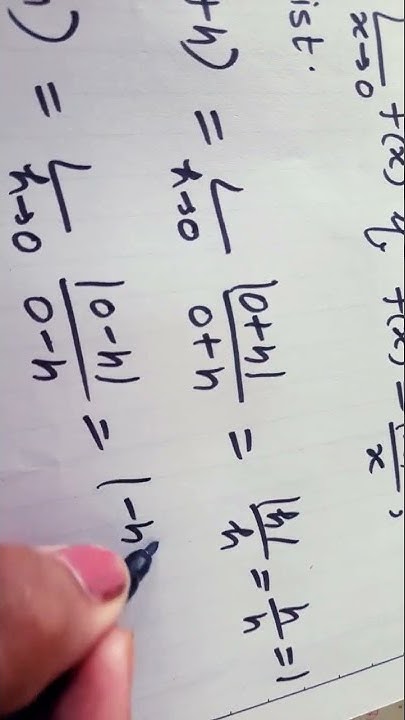 L x→0 f(x) if f(x) = |x|/x,
ist.
+h) = L h→0 |0+h|/0+h = |h|/h = h/h = 1
) = L h→0 |0-h|/0-h = |-h